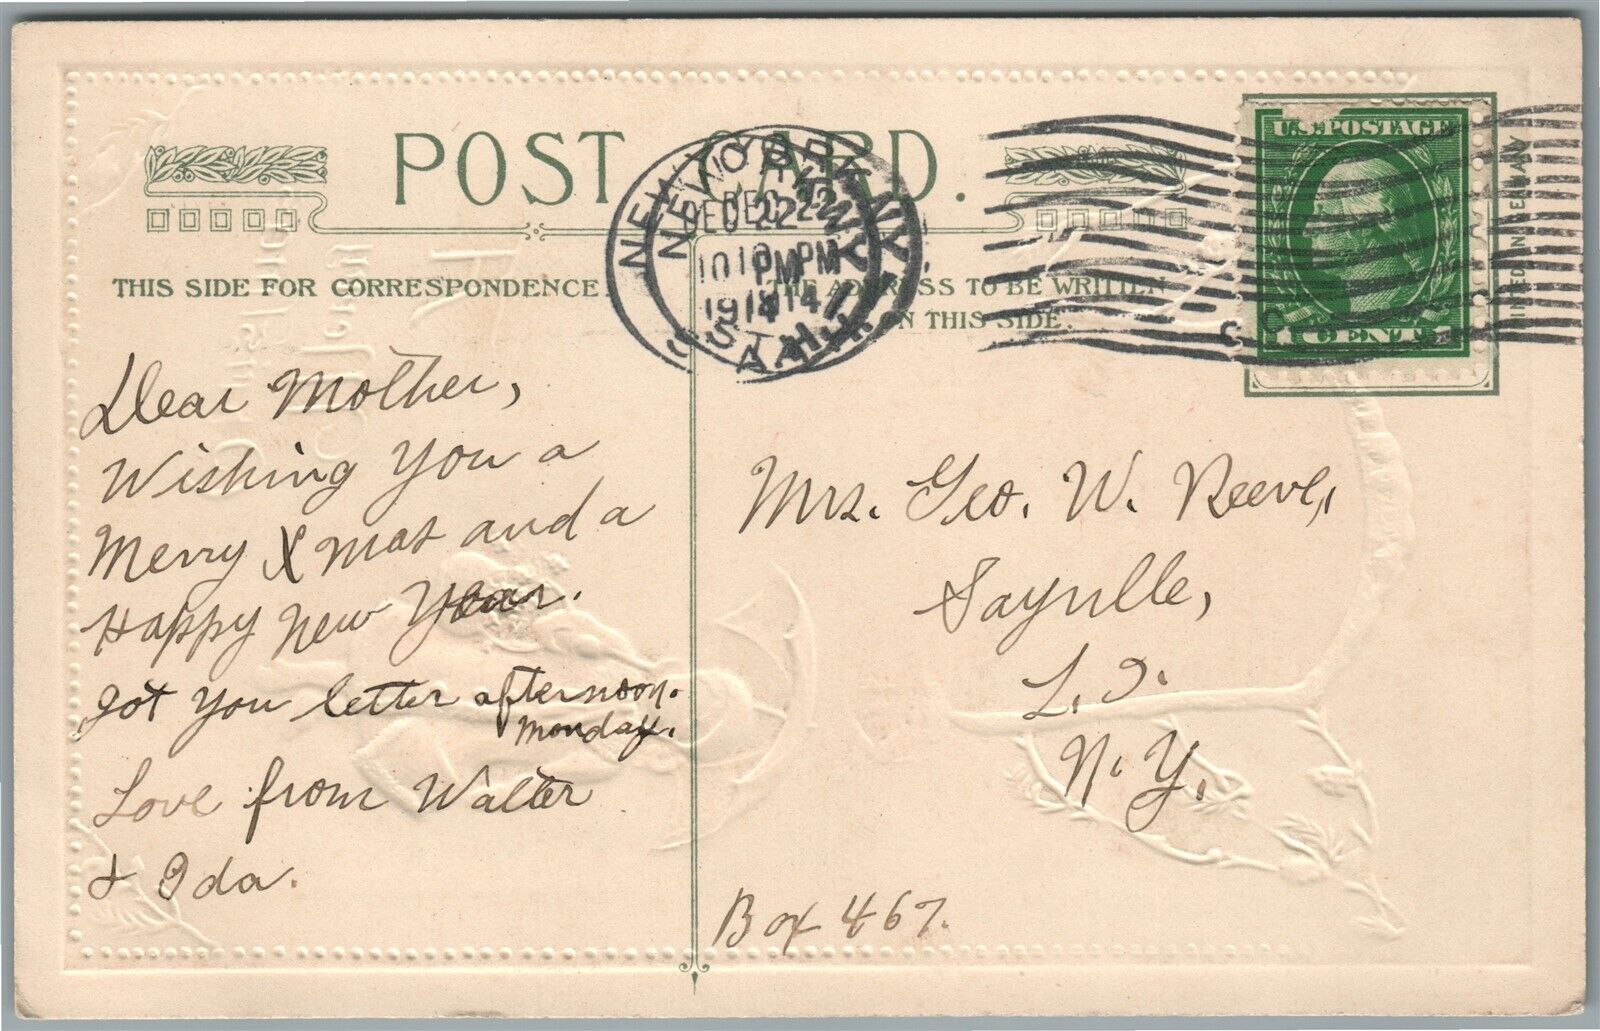 POST CARD.
THIS SIDE FOR CORRESPONDENCE.
THE ADDRESS TO BE WRITTEN
ON THIS SIDE.
NEW YORK, N.Y.
DEC 22
10 PM
1914
STA. H.
U.S. POSTAGE
1 CENT 1
PRINTED IN GERMANY
Dear Mother,
Wishing you a
Merry Xmas and a
Happy New Year.
got you letter afternoon.
Monday.
Love from Walter
& Ida.
Mrs. Geo. W. Reeve,
Sayville,
L. I.
N. Y.
Box 467.